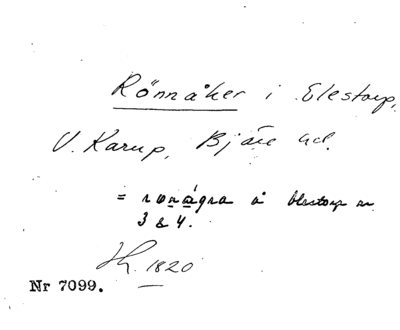 Rönnåker i Elestorp,
V. Karup, Bjäre hd.
= ronågra å Elestorp nr
3 & 4.
1820
Nr 7099.